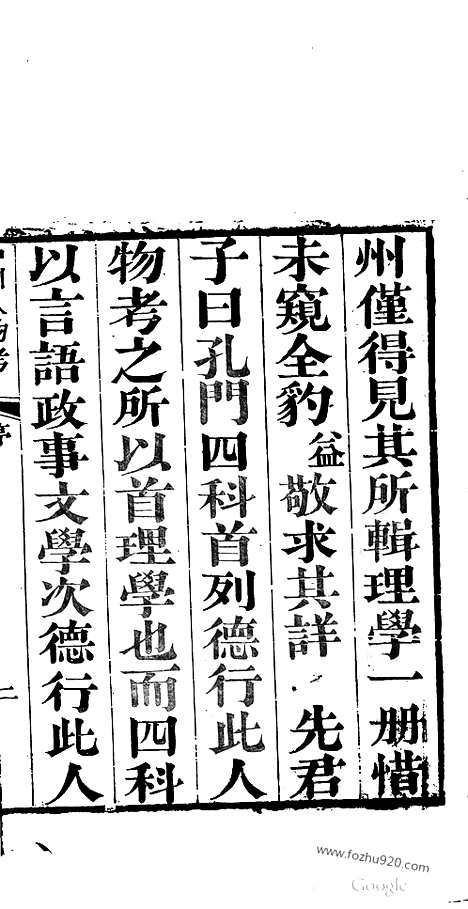 州僅得見其所輯理學一册惜
未窺全豹益敬求其詳 先君
子曰孔門四科首列德行此人
物考之所以首理學也而四科
以言語政事文學次德行此人
人物考 序
二
www.fozhu920.com
Google